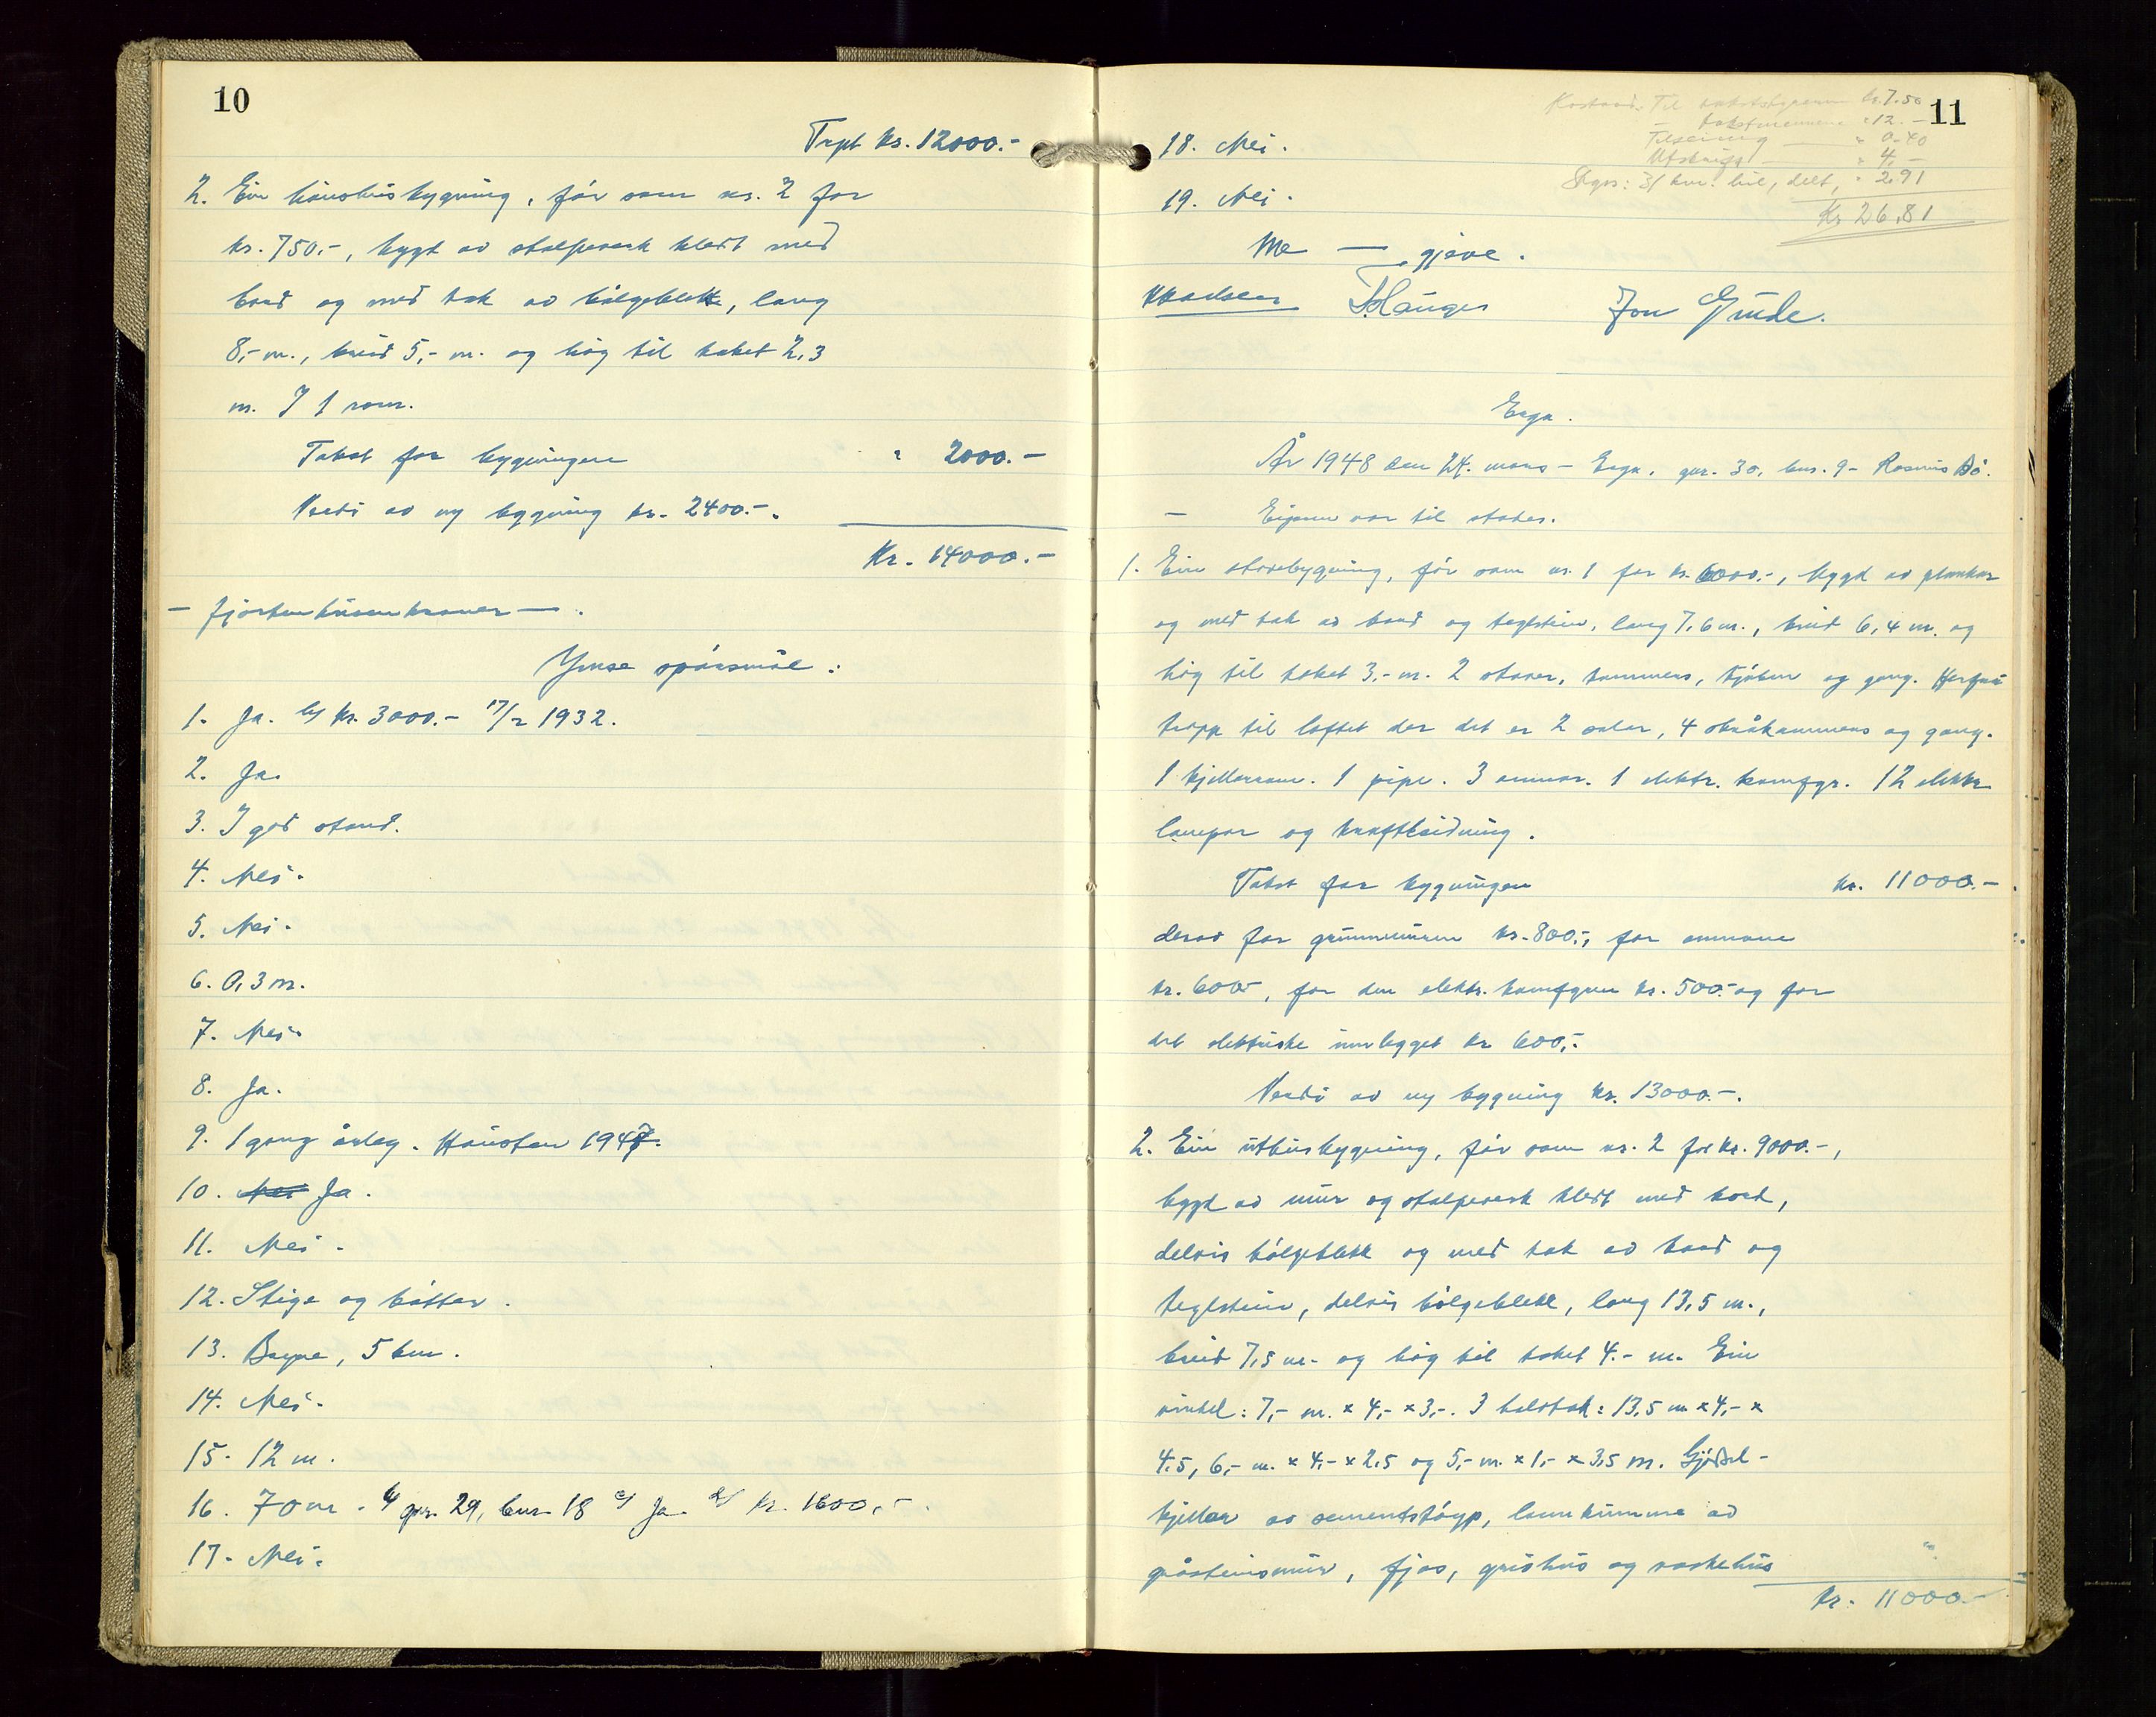 10
Trpt kr. 12000.-
2. Ein hønsehusbygning, før som nr. 2 for
kr. 750.-, bygt av stolpeverk kledt med
bord og med tak av bølgeblekk, lang
8,- m., breid 5,- m. og høg til taket 2,3
m. I 1 rom.
Takst for bygningen " 2000.-
Verdi av ny bygning kr. 2400.-.
Kr. 14000.-
- fjortentusenkroner -.
Ymse spørsmål:
1. Ja. b/ kr. 3000.- 17/2 1932.
2. Ja.
3. I god stand.
4. Nei.
5. Nei.
6. 0,3 m.
7. Nei.
8. Ja.
9. 1 gong årleg. Hausten 1947.
10. Nei Ja.
11. Nei.
12. Stige og bøtter.
13. Bryne, 5 km.
14. Nei.
15. 12 m.
16. 70 m. b/ gnr. 29, bnr. 18 c/ Ja d/ kr. 1600,-.
17. Nei.
11
Kostnad: Til takststyraren kr. 7.50
- takstmennene " 12.-
Tilseining - " 0.40
Utskrift - " 4,-
Skyss: 31 km. bil, delt, " 2.91
Kr 26,81
18. Nei.
19. Nei.
Me - gjeve.
Hauger Jon Grude.
Erga.
År 1948 den 24. mars - Erga, gnr. 30, bnr. 9 - Rasmus Bø.
- Eigaren var til stades.
1. Ein stovebygning, før som nr. 1 for kr. 6000.-, bygd av plankar
og med tak av bord og teglstein, lang 7,6 m., breid 6,4 m. og
høg til taket 3,- m. 2 stover, kammers, kjøken og gang. Herfrå
trapp til loftet der det er 2 saler, 4 skråkammers og gang.
1 kjellarrom. 1 pipe. 3 omnar. 1 elektr. komfyr. 12 elektr.
lampor og kraftleidning.
Takst for bygningen kr. 11000.-
derav for grunnmuren kr. 800.-, for omnane
kr. 600.-, for den elektr. komfyren kr. 500.- og for
det elektriske innlegget kr 600,-.
Verdi av ny bygning kr. 13000.-.
2. Ein uthusbygning, før som nr. 2 for kr. 9000.-,
bygd av mur og stolpeverk kledt med bord,
delvis bølgeblekk og med tak av bord og
teglstein, delvis bølgeblekk, lang 13,5 m.,
breid 7,5 m. og høg til taket 4.- m. Ein
vinkel: 7,- m. x 4,- x 3,-. 3 halvtak: 13,5 m x 4,- x
4,5, 6,- m. x 4,- x 2,5 og 5,- m. x 1,- x 3,5 m. Gjødsel-
kjellar av sementstøyp, landkumme av
gråsteinsmur, fjos, grishus og vaskehus
kr. 11000.-